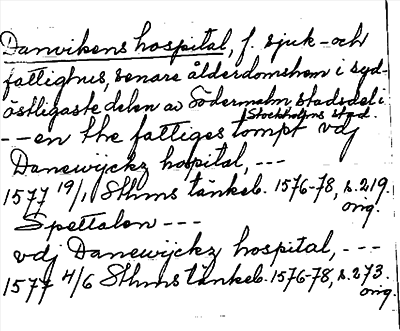 Danvikens hospital, f. sjuk- och
fattighus, senare ålderdomshem i syd-
östligaste delen av Södermalm stadsdel i
Stockholms stad.
-- en the fattiges tompt vdj
Danewijckz hospital, ---
1577 19/1 Sthms tänkeb. 1576-78, s. 219.
orig.
Spettalen ---
vdj Danewijckz hospital, ---
1577 4/6 Sthms tänkeb. 1576-78, s. 273.
orig.